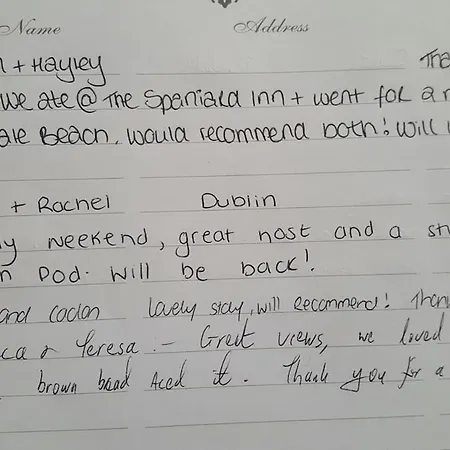 Name Address
+ Hayley Tha
we ate @ The Spaniard Inn + went for a
Beach. Would recommend both! Will
+ Rachel Dublin
weekend, great host and a st
Pod. Will be back!
and lovely stay, will recommend! Than
& Teresa. - Great views, we loved
brown bread Aced it. Thank you for a